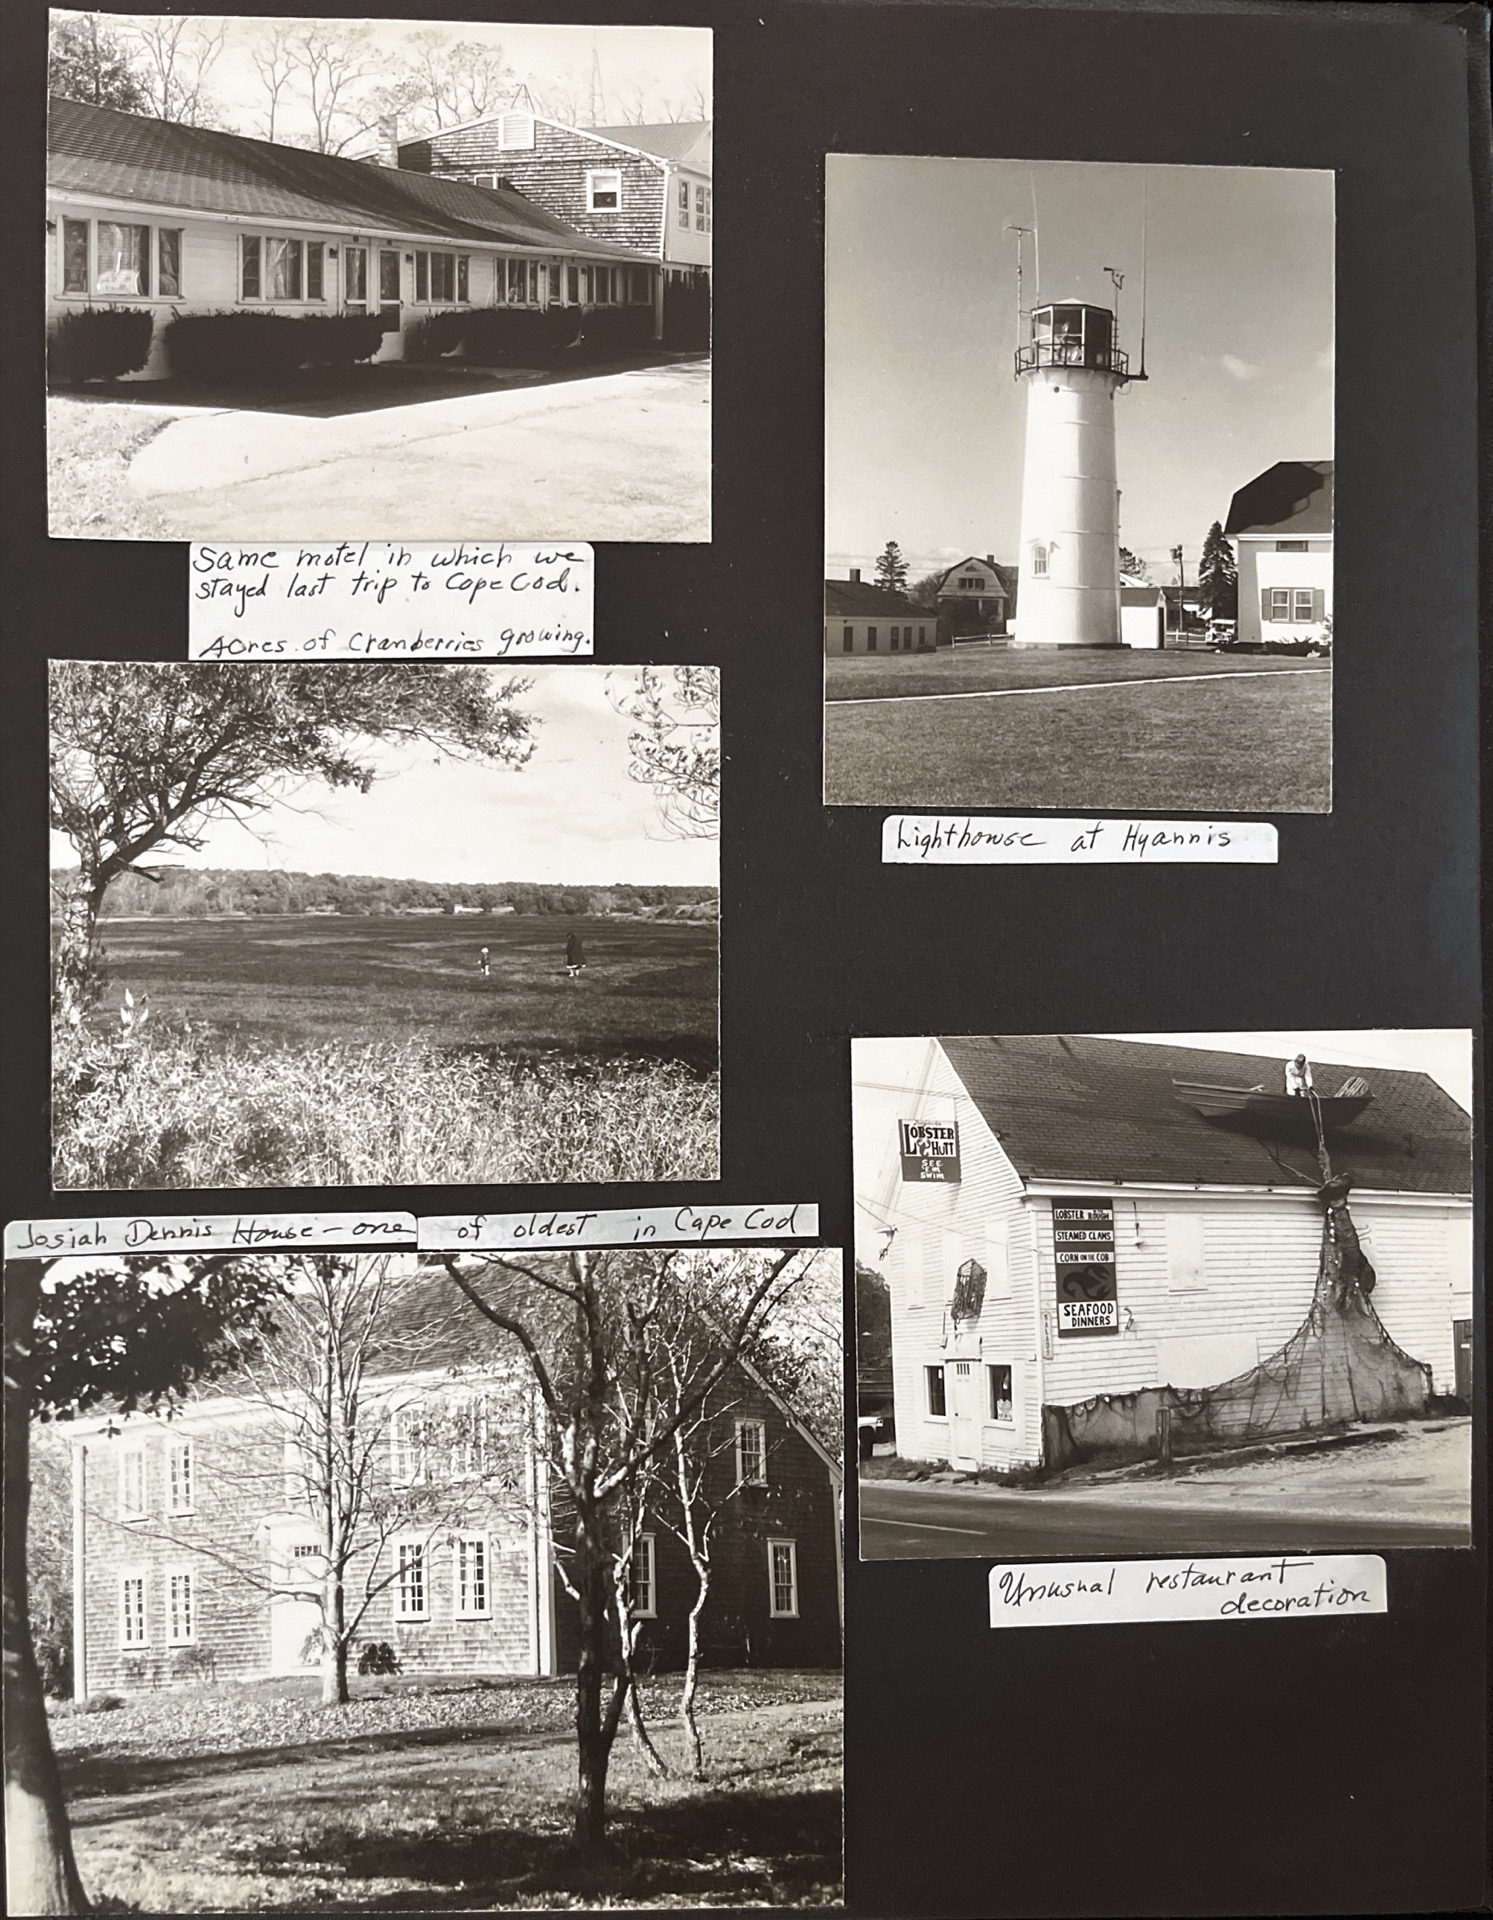 Same motel in which we
stayed last trip to Cape Cod.
Acres of Cranberries growing.
Lighthouse at Hyannis
Josiah Dennis House - one of oldest in Cape Cod
LOBSTER
HUTT
SEE
'EM
SWIM
LOBSTER IN THE ROUGH
STEAMED CLAMS
CORN ON THE COB
SEAFOOD
DINNERS
Unusual restaurant
decoration